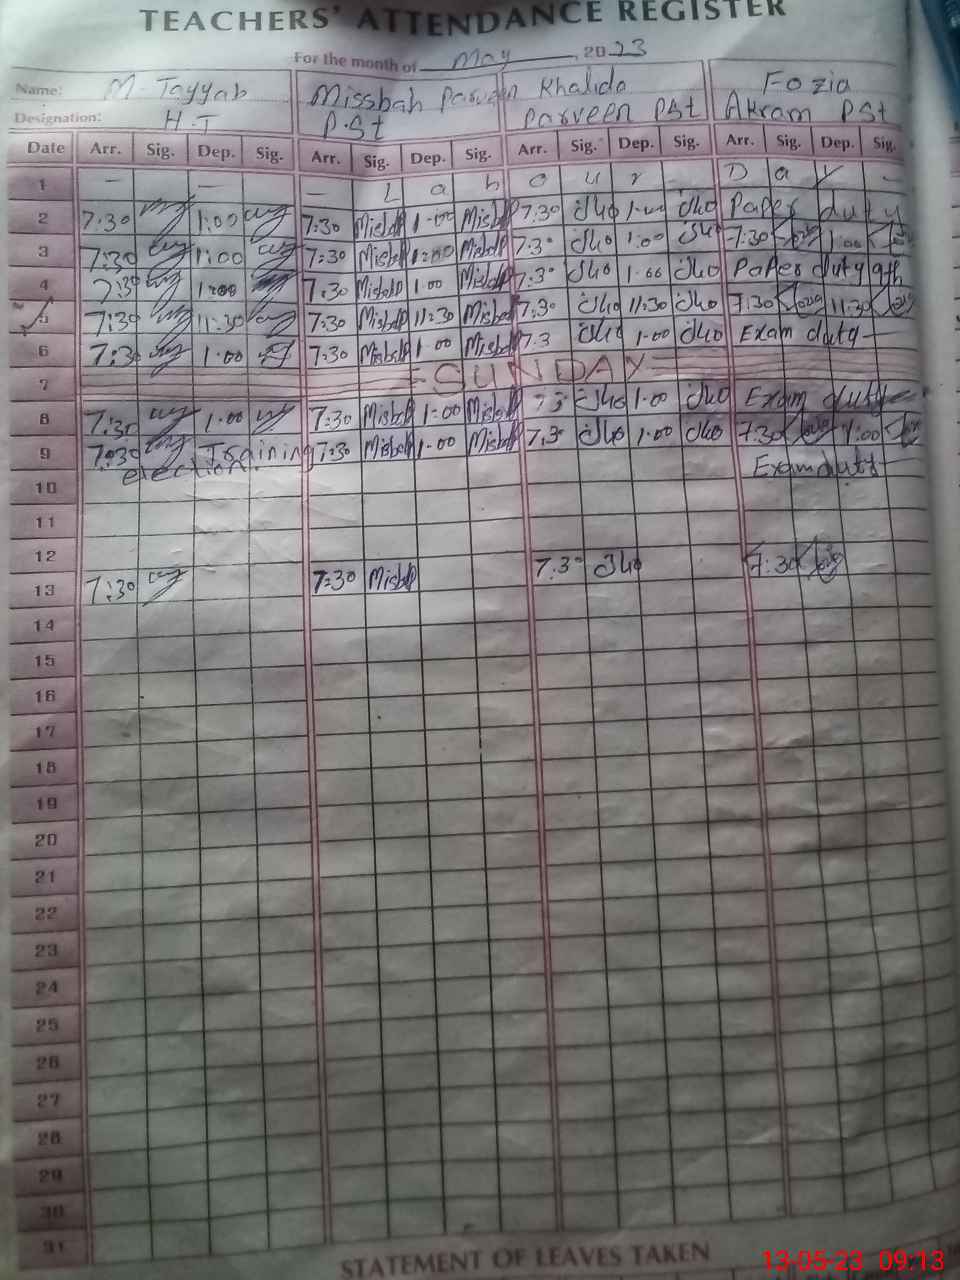 TEACHERS' ATTENDANCE REGISTER
For the month of May, 2023
Name: M-Tayyab Missbah Parveen Khalida Fozia
Designation: H.T P.St Parveen PSt Akram PSt
Date Arr. Sig. Dep. Sig. Arr. Sig. Dep. Sig. Arr. Sig. Dep. Sig. Arr. Sig. Dep. Sig.
1 — — — L a b o u r D a y —
2 7:30 1:00 7:30 Misbah 1-00 Misbah 7:30 1-00 Paper duty
3 7:30 1:00 7:30 Misbah 1:00 Misbah 7:30 1:00 7:30 1:00
4 7:30 1:00 7:30 Misbah 1.00 Misbah 7:30 1.00 Paper duty 9th
5 7:30 11:30 7:30 Misbah 11:30 Misbah 7:30 11:30 7:30 11:30
6 7:30 1.00 7:30 Misbah 1.00 Misbah 7:3 1.00 Exam duty -
7 = SUNDAY =
8 7:30 1.00 7:30 Misbah 1:00 Misbah 1.00 Exam duty
9 7:30 Training 7:30 Misbah 1.00 Misbah 7:30 1.00 7:30 1:00
election. Exam duty
10
11
12
13 7:30 7:30 Misbah 7:30 7:30
14
15
16
17
18
19
20
21
22
23
24
25
26
27
28
29
30
31
STATEMENT OF LEAVES TAKEN
13-05-23 09:13